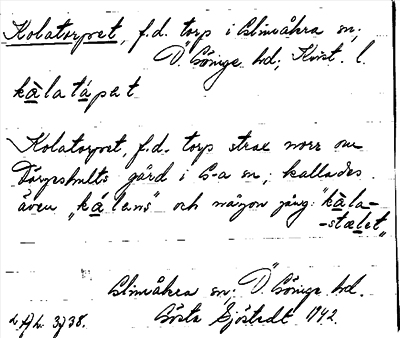 Kolatorpet, f.d. torp i Glimåkra sn,
Ö. Göinge hd, Krist. l.
kàlatápet
Kolatorpet, f.d. torp strax norr om
gård i G-a sn; kallades
även "kálens" och någon gång "kàla-
-stælet"
Glimåkra sn, Ö Göinge hd.
Gösta Sjöstedt 1942.